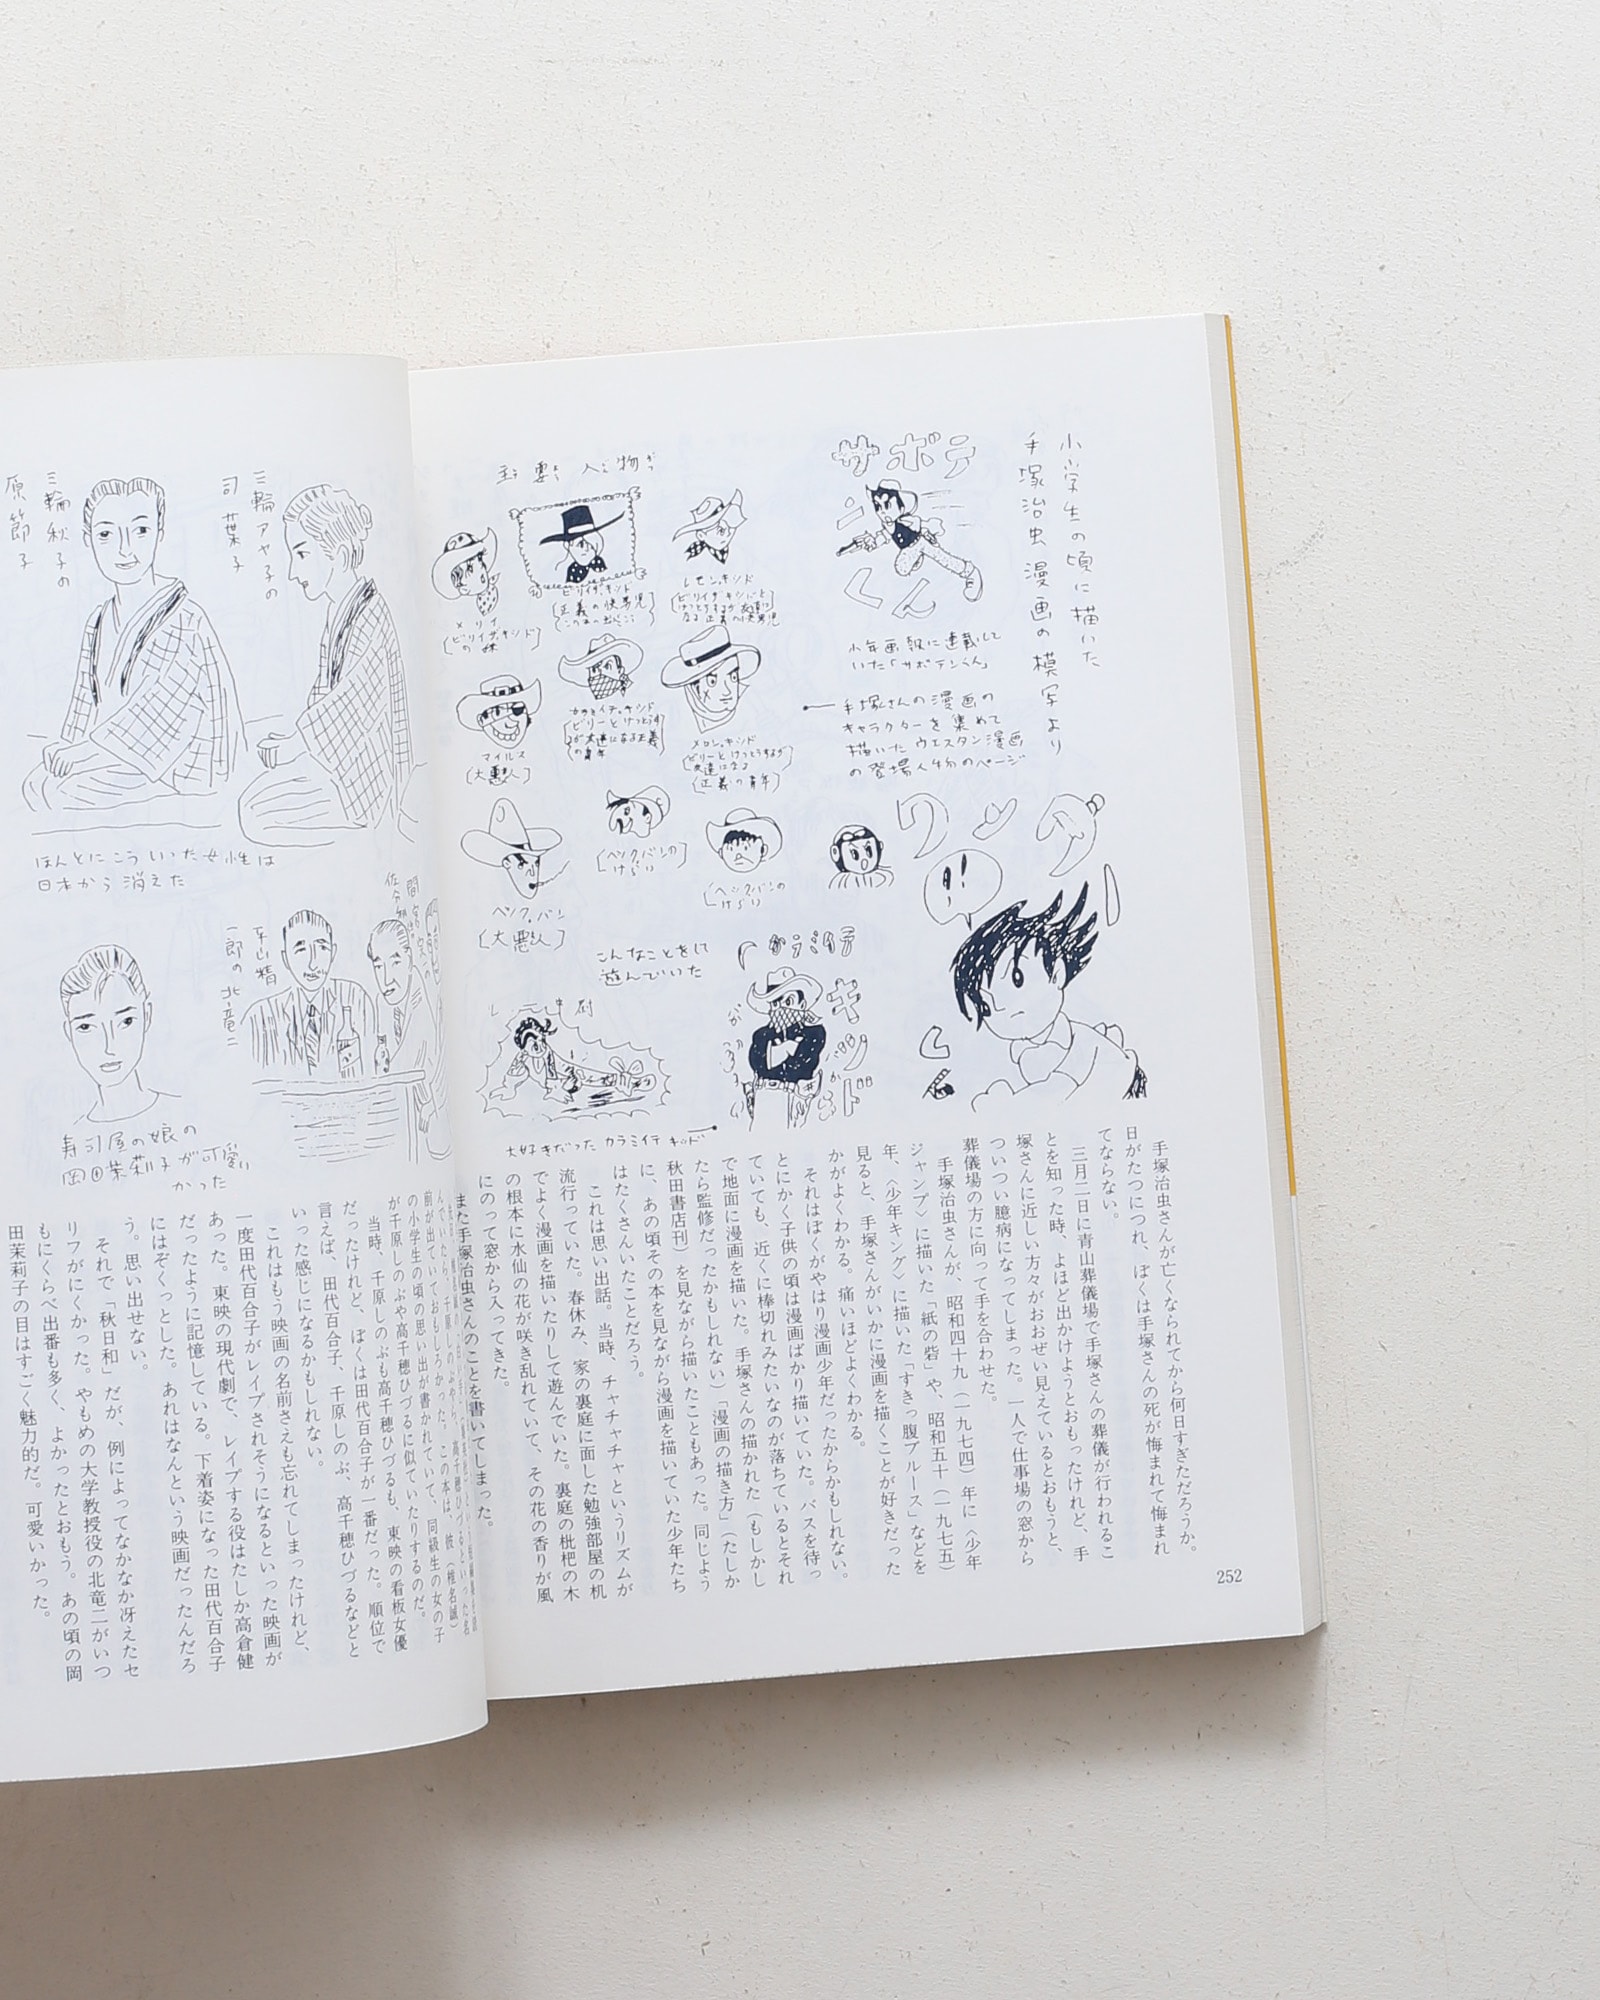 小学生の頃に描いた
手塚治虫漫画の模写より
サボテンくん
少年画報に連載して
いた「サボテンくん」
手塚さんの漫画の
キャラクターを集めて
描いたウエスタン漫画
の登場人物のページ
主要人物
レモンキッド
ビリイザキッド
正義の快男児
メリイ
ビリイザキッド
の妹
メロンキッド
友達になる
正義の青年
マイルス
大悪人
ベック・バン
大悪人
こんなことをして
遊んでいた
カラミイテ
キッド
大好きだったカラミイテキッド
手塚治虫さんが亡くなられてから何日すぎただろうか。
日がたつにつれ、ぼくは手塚さんの死が悔まれて悔まれ
てならない。
三月二日に青山葬儀場で手塚さんの葬儀が行われるこ
とを知った時、よほど出かけようとおもったけれど、手
塚さんに近しい方々がおおぜい見えているとおもうと、
ついつい臆病になってしまった。一人で仕事場の窓から
葬儀場の方に向って手を合わせた。
手塚治虫さんが、昭和四十九（一九七四）年に〈少年
ジャンプ〉に描いた「紙の砦」や、昭和五十（一九七五）
年、〈少年キング〉に描いた「すきっ腹ブルース」などを
見ると、手塚さんがいかに漫画を描くことが好きだった
かがよくわかる。痛いほどよくわかる。
それはぼくがやはり漫画少年だったからかもしれない。
とにかく子供の頃は漫画ばかり描いていた。バスを待っ
ていても、近くに棒切れみたいなのが落ちているとそれ
で地面に漫画を描いた。手塚さんの描かれた（もしかし
たら監修だったかもしれない）「漫画の描き方」（たしか
秋田書店刊）を見ながら描いたこともあった。同じよう
に、あの頃その本を見ながら漫画を描いていた少年たち
はたくさんいたことだろう。
これは思い出話。当時、チャチャチャというリズムが
流行っていた。春休み、家の裏庭に面した勉強部屋の机
でよく漫画を描いたりして遊んでいた。裏庭の枇杷の木
の根本に水仙の花が咲き乱れていて、その花の香りが風
にのって窓から入ってきた。
また手塚治虫さんのことを書いてしまった。
252
三輪アヤ子の
司葉子
三輪秋子の
原節子
ほんとにこういった女性は
日本から消えた
平山精
一郎の北竜二
寿司屋の娘の
岡田茉莉子が可愛い
かった
前が出ていておもしろかった。この本は、彼（椎名誠）
の小学生の頃の思い出が書かれていて、同級生の女の子
が千原しのぶや高千穂ひづるに似ていたりするのだ。
当時、千原しのぶも高千穂ひづるも、東映の看板女優
だったけれど、ぼくは田代百合子が一番だった。順位で
言えば、田代百合子、千原しのぶ、高千穂ひづるなどと
いった感じになるかもしれない。
これはもう映画の名前さえも忘れてしまったけれど、
一度田代百合子がレイプされそうになるといった映画が
あった。東映の現代劇で、レイプする役はたしか高倉健
だったように記憶している。下着姿になった田代百合子
にはぞくっとした。あれはなんという映画だったんだろ
う。思い出せない。
それで「秋日和」だが、例によってなかなか冴えたセ
リフがにくかった。やもめの大学教授役の北竜二がいつ
もにくらべ出番も多く、よかったとおもう。あの頃の岡
田茉莉子の目はすごく魅力的だ。可愛いかった。